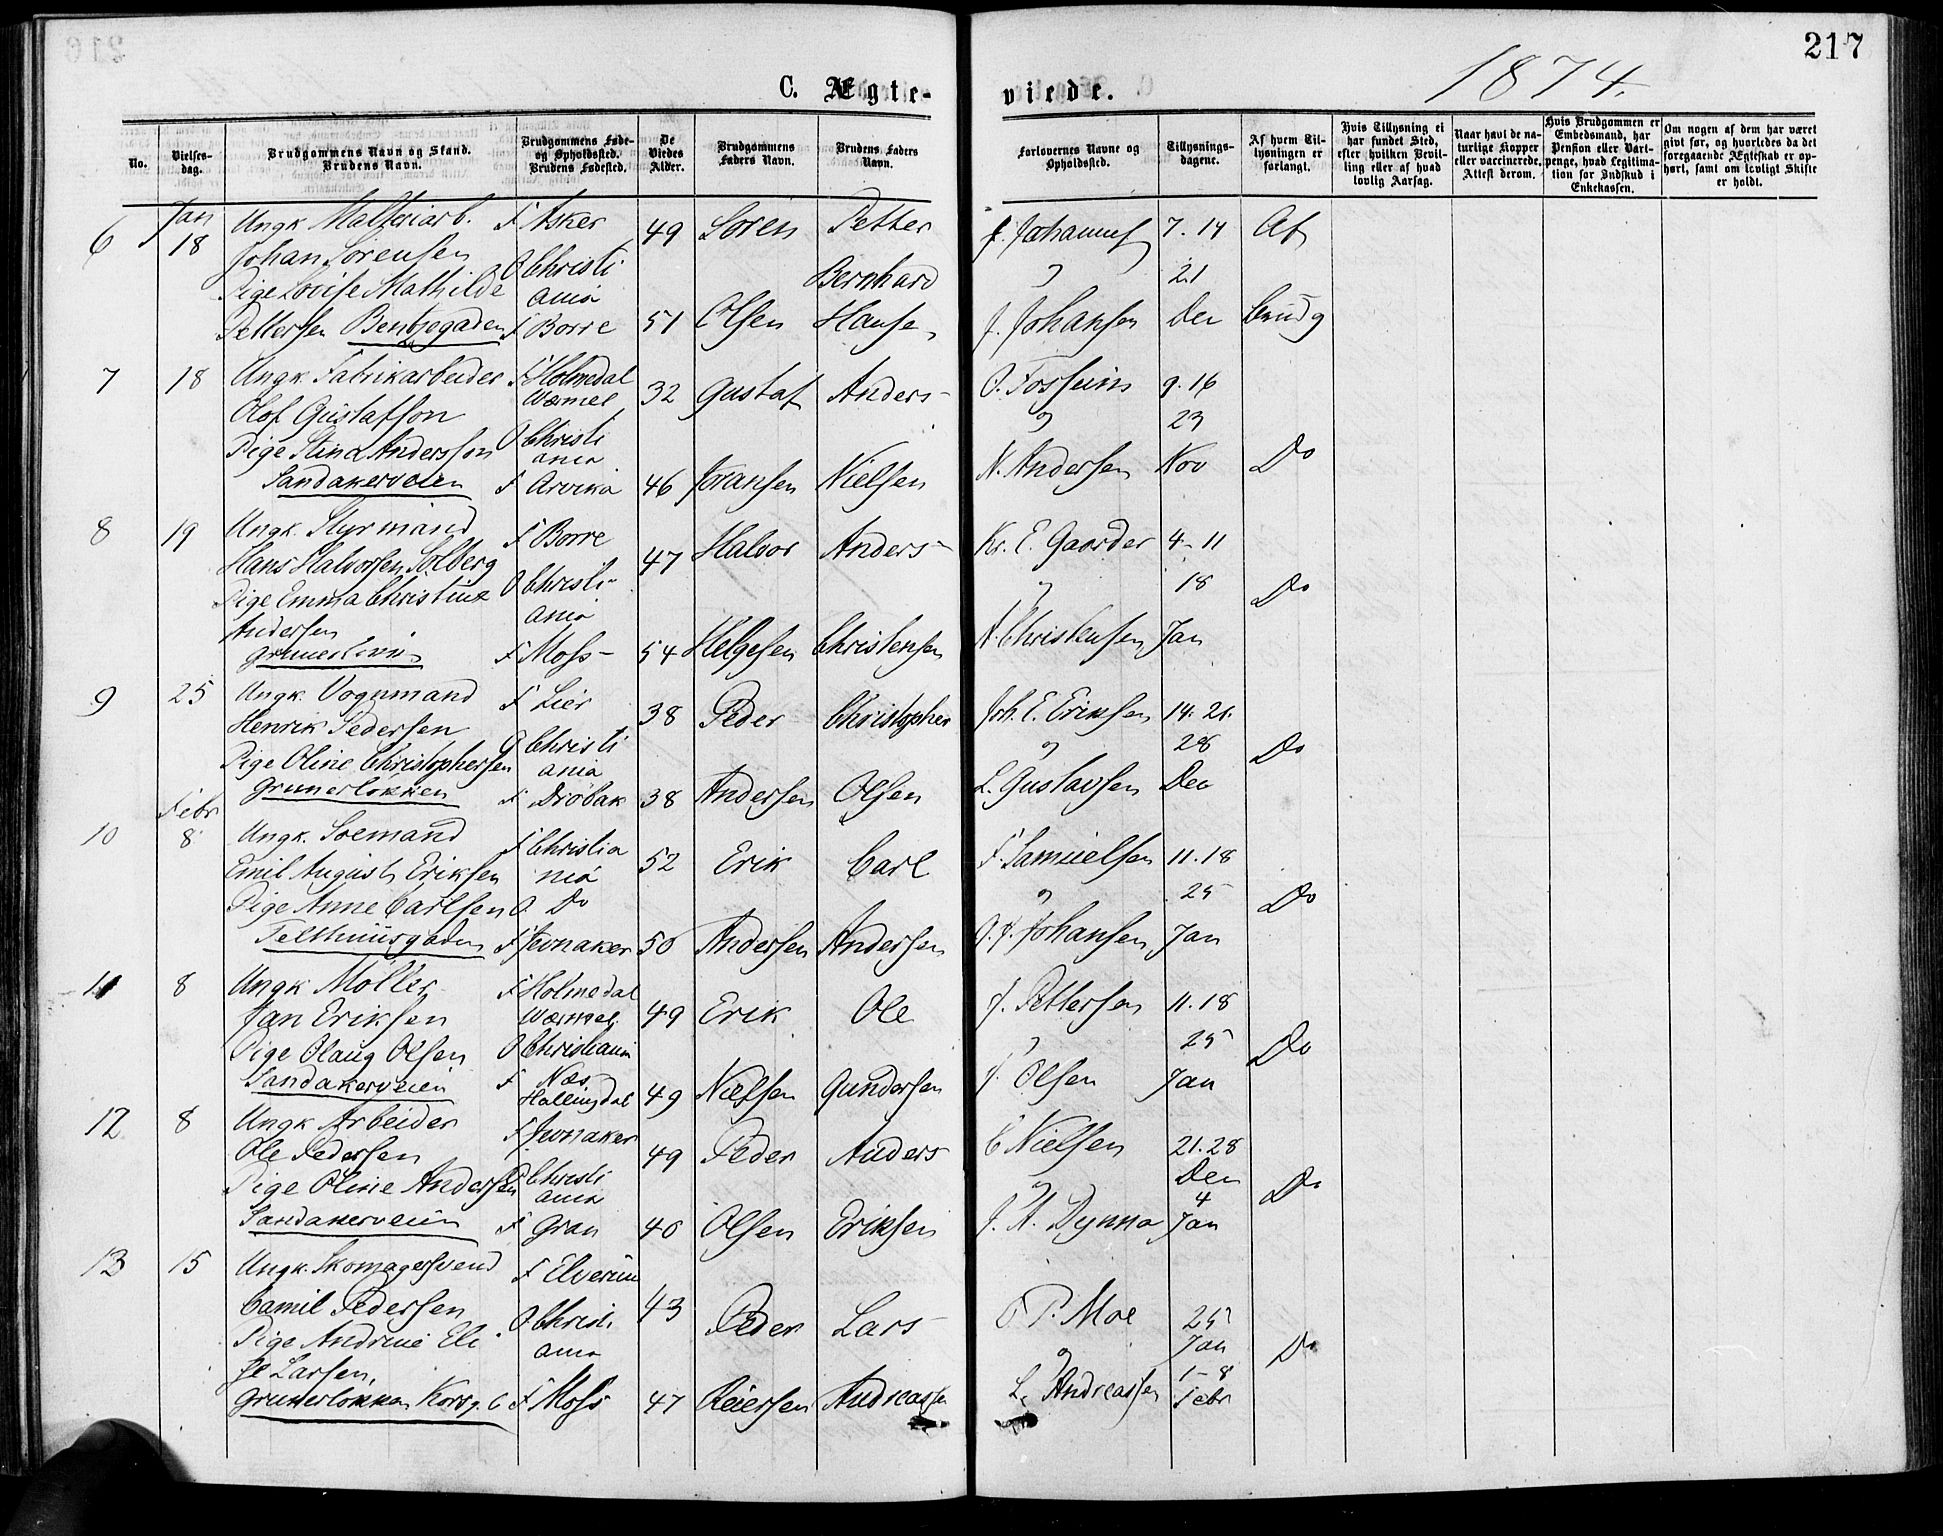 217
1874.
C. Ægte-
viede.
No.
Vielses-
dag.
Brudgommens Navn og Stand.
Brudens Navn.
Brudgommens Føde-
og Opholdssted.
Brudens Fødested.
De
Viedes
Alder.
Brudgommens
Faders Navn.
Brudens Faders
Navn.
Forlovernes Navne og
Opholdssted.
Tillysnings-
dagene.
Af hvem Til-
lysningen er
forlangt.
Hvis Tillysning ei
har fundet Sted,
efter hvilken Bevil-
ling eller af hvad
lovlig Aarsag.
Naar havt de na-
turlige Kopper
eller vaccinerede.
Attest derom.
Hvis Brudgommen er
Embedsmand, har
Pension eller Vart-
penge, hvad Legitima-
tion for Indskud i
Enkekassen.
Om nogen af dem har været
gift før, og hvorledes da det
foregaaende Ægteskab er op-
hørt, samt om lovligt Skifte
er holdt.
6 Jan 18
Ungk Malteriarb.
Johan Sørensen
Pige Lovise Mathilde
Pettersen Bentsegaden
F Asker
O Christi
ania
F Borre
49
51
Soren
Olsen
Petter
Bernhard
Hansen
J. Johannes
og
J. Johansen
7. 14
21
Den
Af
Brudg
7 18
Ungk. Fabrikarbeider
Olof Gustafson
Pige Stina Andersson
Sandakerveien
F Holmedal
Wærmel
O Christi
ania
F Arvika
32
46
Gustaf
Joransen
Anders-
Nielsen
O. Fossum
og
N. Andersen
9. 16
23
Nov
Do
8 19
Ungk. Styrmand
Hans Halvorsen Solberg
Pige Emma Christine
Andersen
F Borre
O Christi-
ania
F Moss-
47
54
Halvor
Helgesen
Anders-
Christensen
Kr. E. Gaarder
og
N. Christensen
4-11
18
Jan
Do
9 25
Ungk. Vognmand
Henrik Pedersen
Pige Oline Christophersen
Grunerlokken
F Lier
O Christi
ania
F Drobak
38
38
Peder
Andersen
Christopher
Olsen
Joh. E. Eriksen
og
L. Gustavsen
14. 21.
28
Dec
Do
10 Febr 8
Ungk. Soemand
Emil August Eriksen
Pige Anne Carlsen
Telthuusgaden
F Christia
nia
O Do
F Jevnaker
52
50
Erik
Andersen
Carl
Andersen
F. Samuelsen
og
J. Johansen
11. 18
25
Jan
Do
11 8
Ungk Moller
Jan Eriksen
Pige Olaug Olsen
Sandakerveien
F Holmedal
Wærmel.
O Christiania
F Næs
Hallingdal
49
49
Erik
Nielsen
Ole
Gundersen
J. Pettersen
og
J. Olsen
11. 18
25
Jan
Do
12 8
Ungk Arbeider
Ole Pedersen
Pige Oline Andersen
Sandakerveien
F Jevnaker
O Christi
ania
F Gran
49
40
Peder
Olsen
Anders
Eriksen
C Nielsen
og
J. A. Dynna
21. 28
Den
4
Jan
Do
13 15
Ungk. Skomagersvend
Camil Pedersen
Pige Andrine Eli
se Larsen,
Grunerlokken Korsg. 6
F Elverum
O Christi
ania
F Moss
43
47
Peder
Reiersen
Lars-
Andreassen
P. Moe
og
L. Andreassen
25
Jan
1-8
Febr
Do